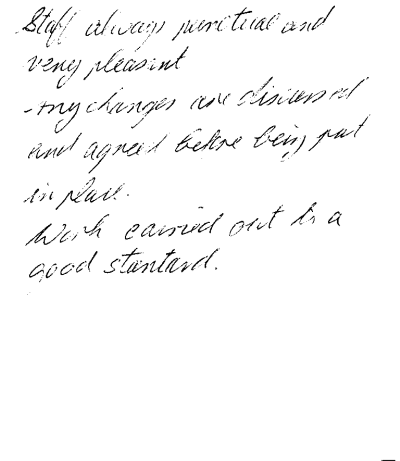 Staff always punctual and
very pleasant
- Any changes are discussed
and agreed before being put
in place.
Work carried out to a
good standard.